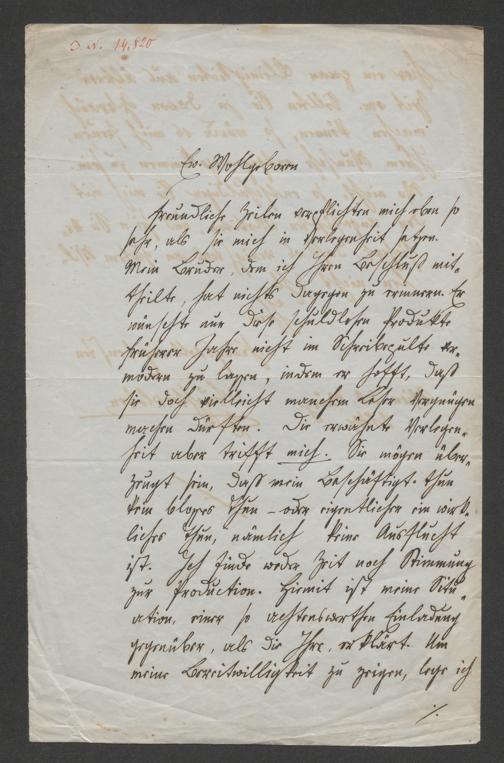 J. N. 14.820
Ew. Wohlgeboren
freundliche Zeilen verpflichten mich eben so
sehr, als sie mich in Verlegenheit setzen.
Mein Bruder, dem ich Ihren Beschluß mit-
theilte, hat nichts dagegen zu erinnern. Er
wünschte nur diese schuldlosen Produkte
früherer Jahre nicht im Schreibepulte ver-
modern zu lassen, indem er hofft, daß
sie doch vielleicht manchem Leser Vergnügen
machen dürften. Die erwähnte Verlegen-
heit aber trifft mich. Sie mögen über-
zeugt sein, daß mein Beschäftigt-thun
kein bloßes Thun – oder eigentlicher ein wirk-
liches Thun, nämlich keine Ausflucht
ist. Ich finde weder Zeit noch Stimmung
zur Production. Hiermit ist meine Situ-
ation, einer so achtenswerthen Einladung
gegenüber, als die Ihre, erklärt. Um
meine Bereitwilligkeit zu zeigen, lege ich
./.